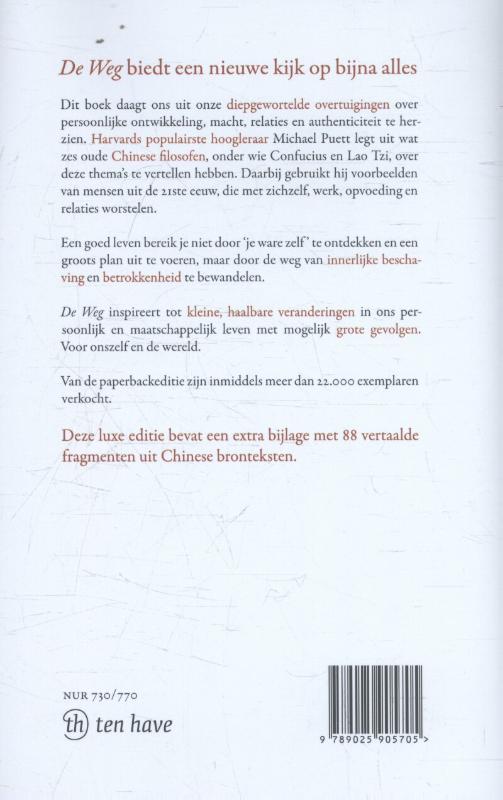 De Weg biedt een nieuwe kijk op bijna alles
Dit boek daagt ons uit onze diepgewortelde overtuigingen over
persoonlijke ontwikkeling, macht, relaties en authenticiteit te her-
zien. Harvards populairste hoogleraar Michael Puett legt uit wat
zes oude Chinese filosofen, onder wie Confucius en Lao Tzi, over
deze thema's te vertellen hebben. Daarbij gebruikt hij voorbeelden
van mensen uit de 21ste eeuw, die met zichzelf, werk, opvoeding en
relaties worstelen.
Een goed leven bereik je niet door 'je ware zelf' te ontdekken en een
groots plan uit te voeren, maar door de weg van innerlijke bescha-
ving en betrokkenheid te bewandelen.
De Weg inspireert tot kleine, haalbare veranderingen in ons per-
soonlijk en maatschappelijk leven met mogelijk grote gevolgen.
Voor onszelf en de wereld.
Van de paperbackeditie zijn inmiddels meer dan 22.000 exemplaren
verkocht.
Deze luxe editie bevat een extra bijlage met 88 vertaalde
fragmenten uit Chinese bronteksten.
NUR 730/770
th ten have
9 789025 905705 >